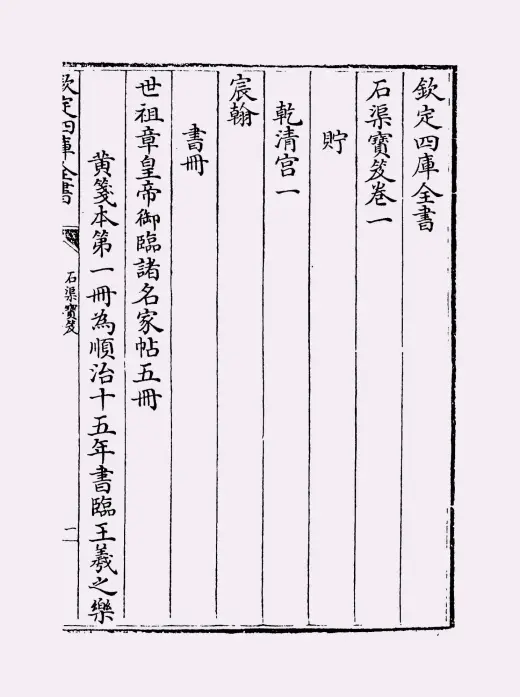 欽定四庫全書
石渠寶笈卷一
貯
乾清宫一
宸翰
書冊
世祖章皇帝御臨諸名家帖五冊
黄箋本第一冊為順治十五年書臨王羲之樂
欽定四庫全書
石渠寶笈
一